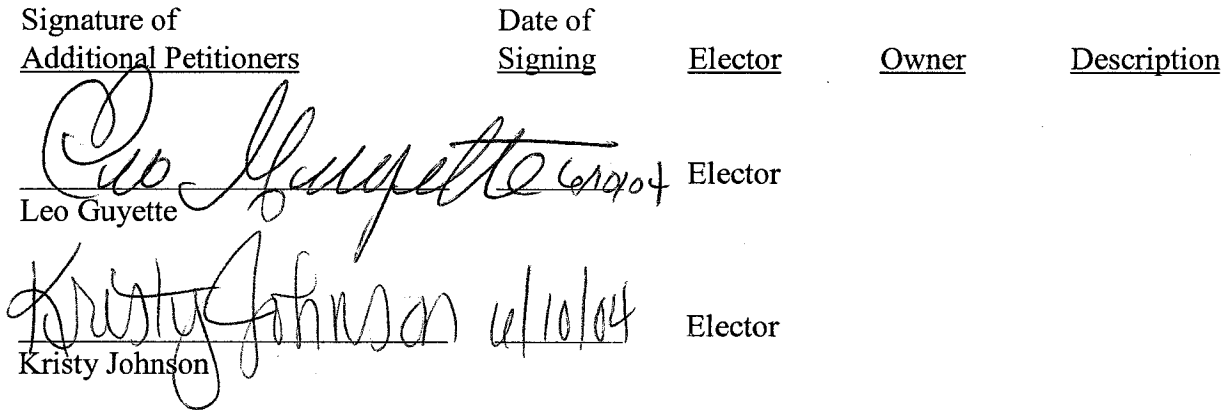 Signature of Date of
Additional Petitioners Signing Elector Owner Description
Leo Guyette 6/10/04 Elector
Leo Guyette
Kristy Johnson 6/10/04 Elector
Kristy Johnson